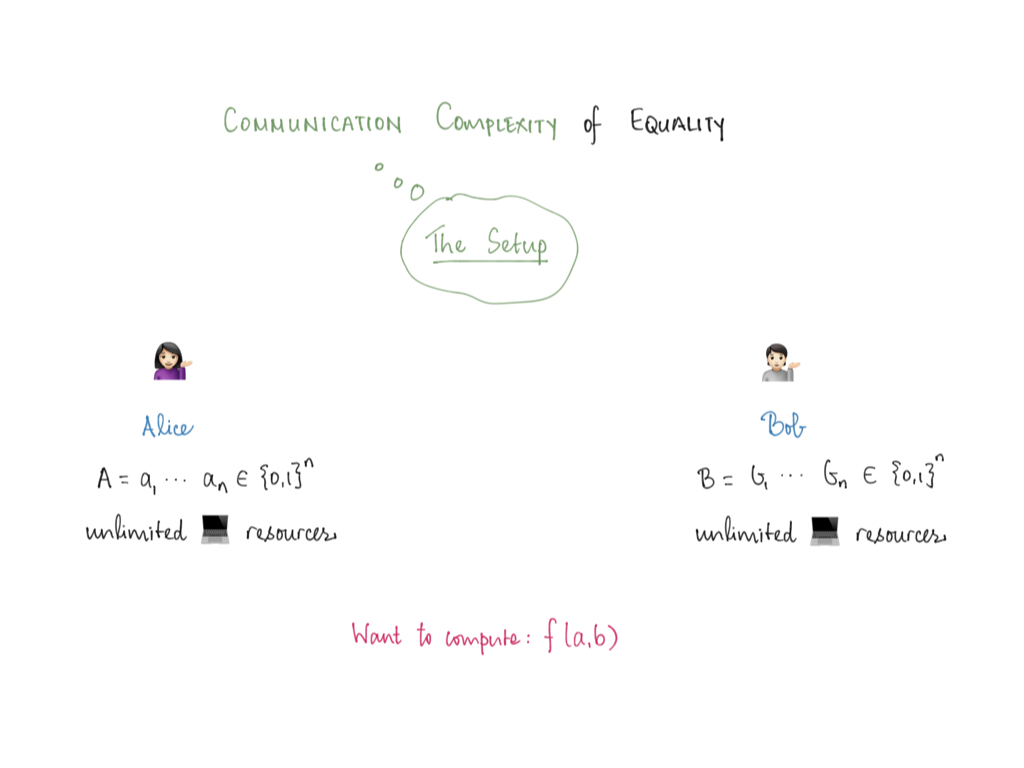 COMMUNICATION COMPLEXITY of EQUALITY
The Setup
Alice
Bob
A = a₁ ⋯ aₙ ∈ {0,1}ⁿ
B = b₁ ⋯ bₙ ∈ {0,1}ⁿ
unlimited 💻 resources
unlimited 💻 resources
Want to compute: f(a,b)